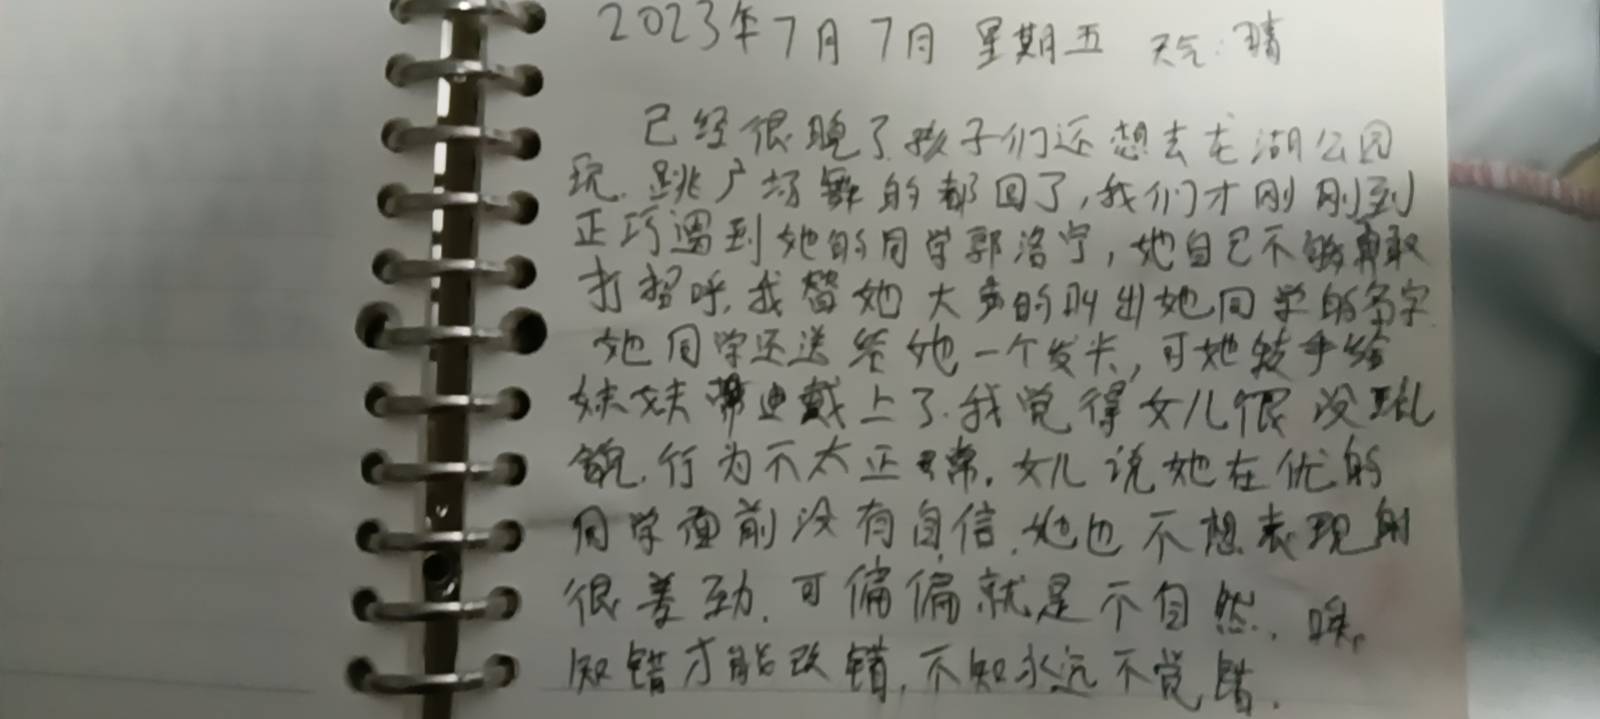 2023年7月7日 星期五 天气:晴
已经很晚了孩子们还想去龙湖公园
玩.跳广场舞的都回了,我们才刚刚到
正巧遇到她的同学郭洛宁,她自己不够勇敢
打招呼.我替她大声的叫出她同学的名字
她同学还送给她一个发卡,可她转手给
妹妹带迪戴上了.我觉得女儿很没礼
貌.行为不太正常.女儿说她在优的
同学面前没有自信.她也不想表现的
很差劲.可偏偏就是不自然.唉,
知错才能改错,不知永远不觉错.